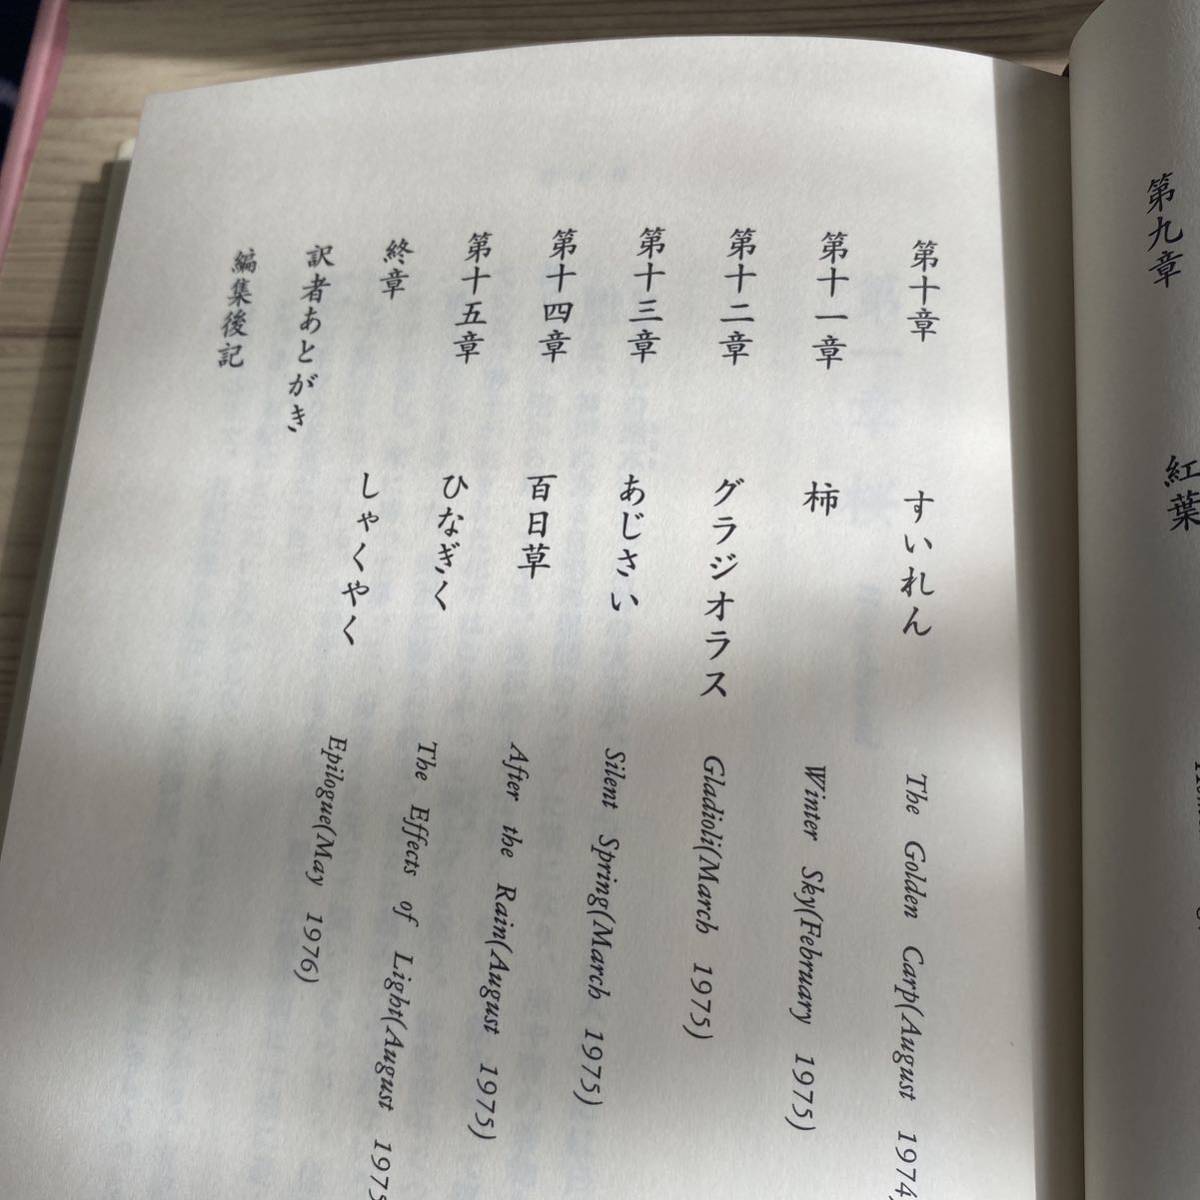 第九章 紅葉
第十章 すいれん The Golden Carp(August 1974)
第十一章 柿 Winter Sky(February 1975)
第十二章 グラジオラス Gladioli(March 1975)
第十三章 あじさい Silent Spring(March 1975)
第十四章 百日草 After the Rain(August 1975)
第十五章 ひなぎく The Effects of Light(August 1975
終章 しゃくやく Epilogue(May 1976)
訳者あとがき
編集後記